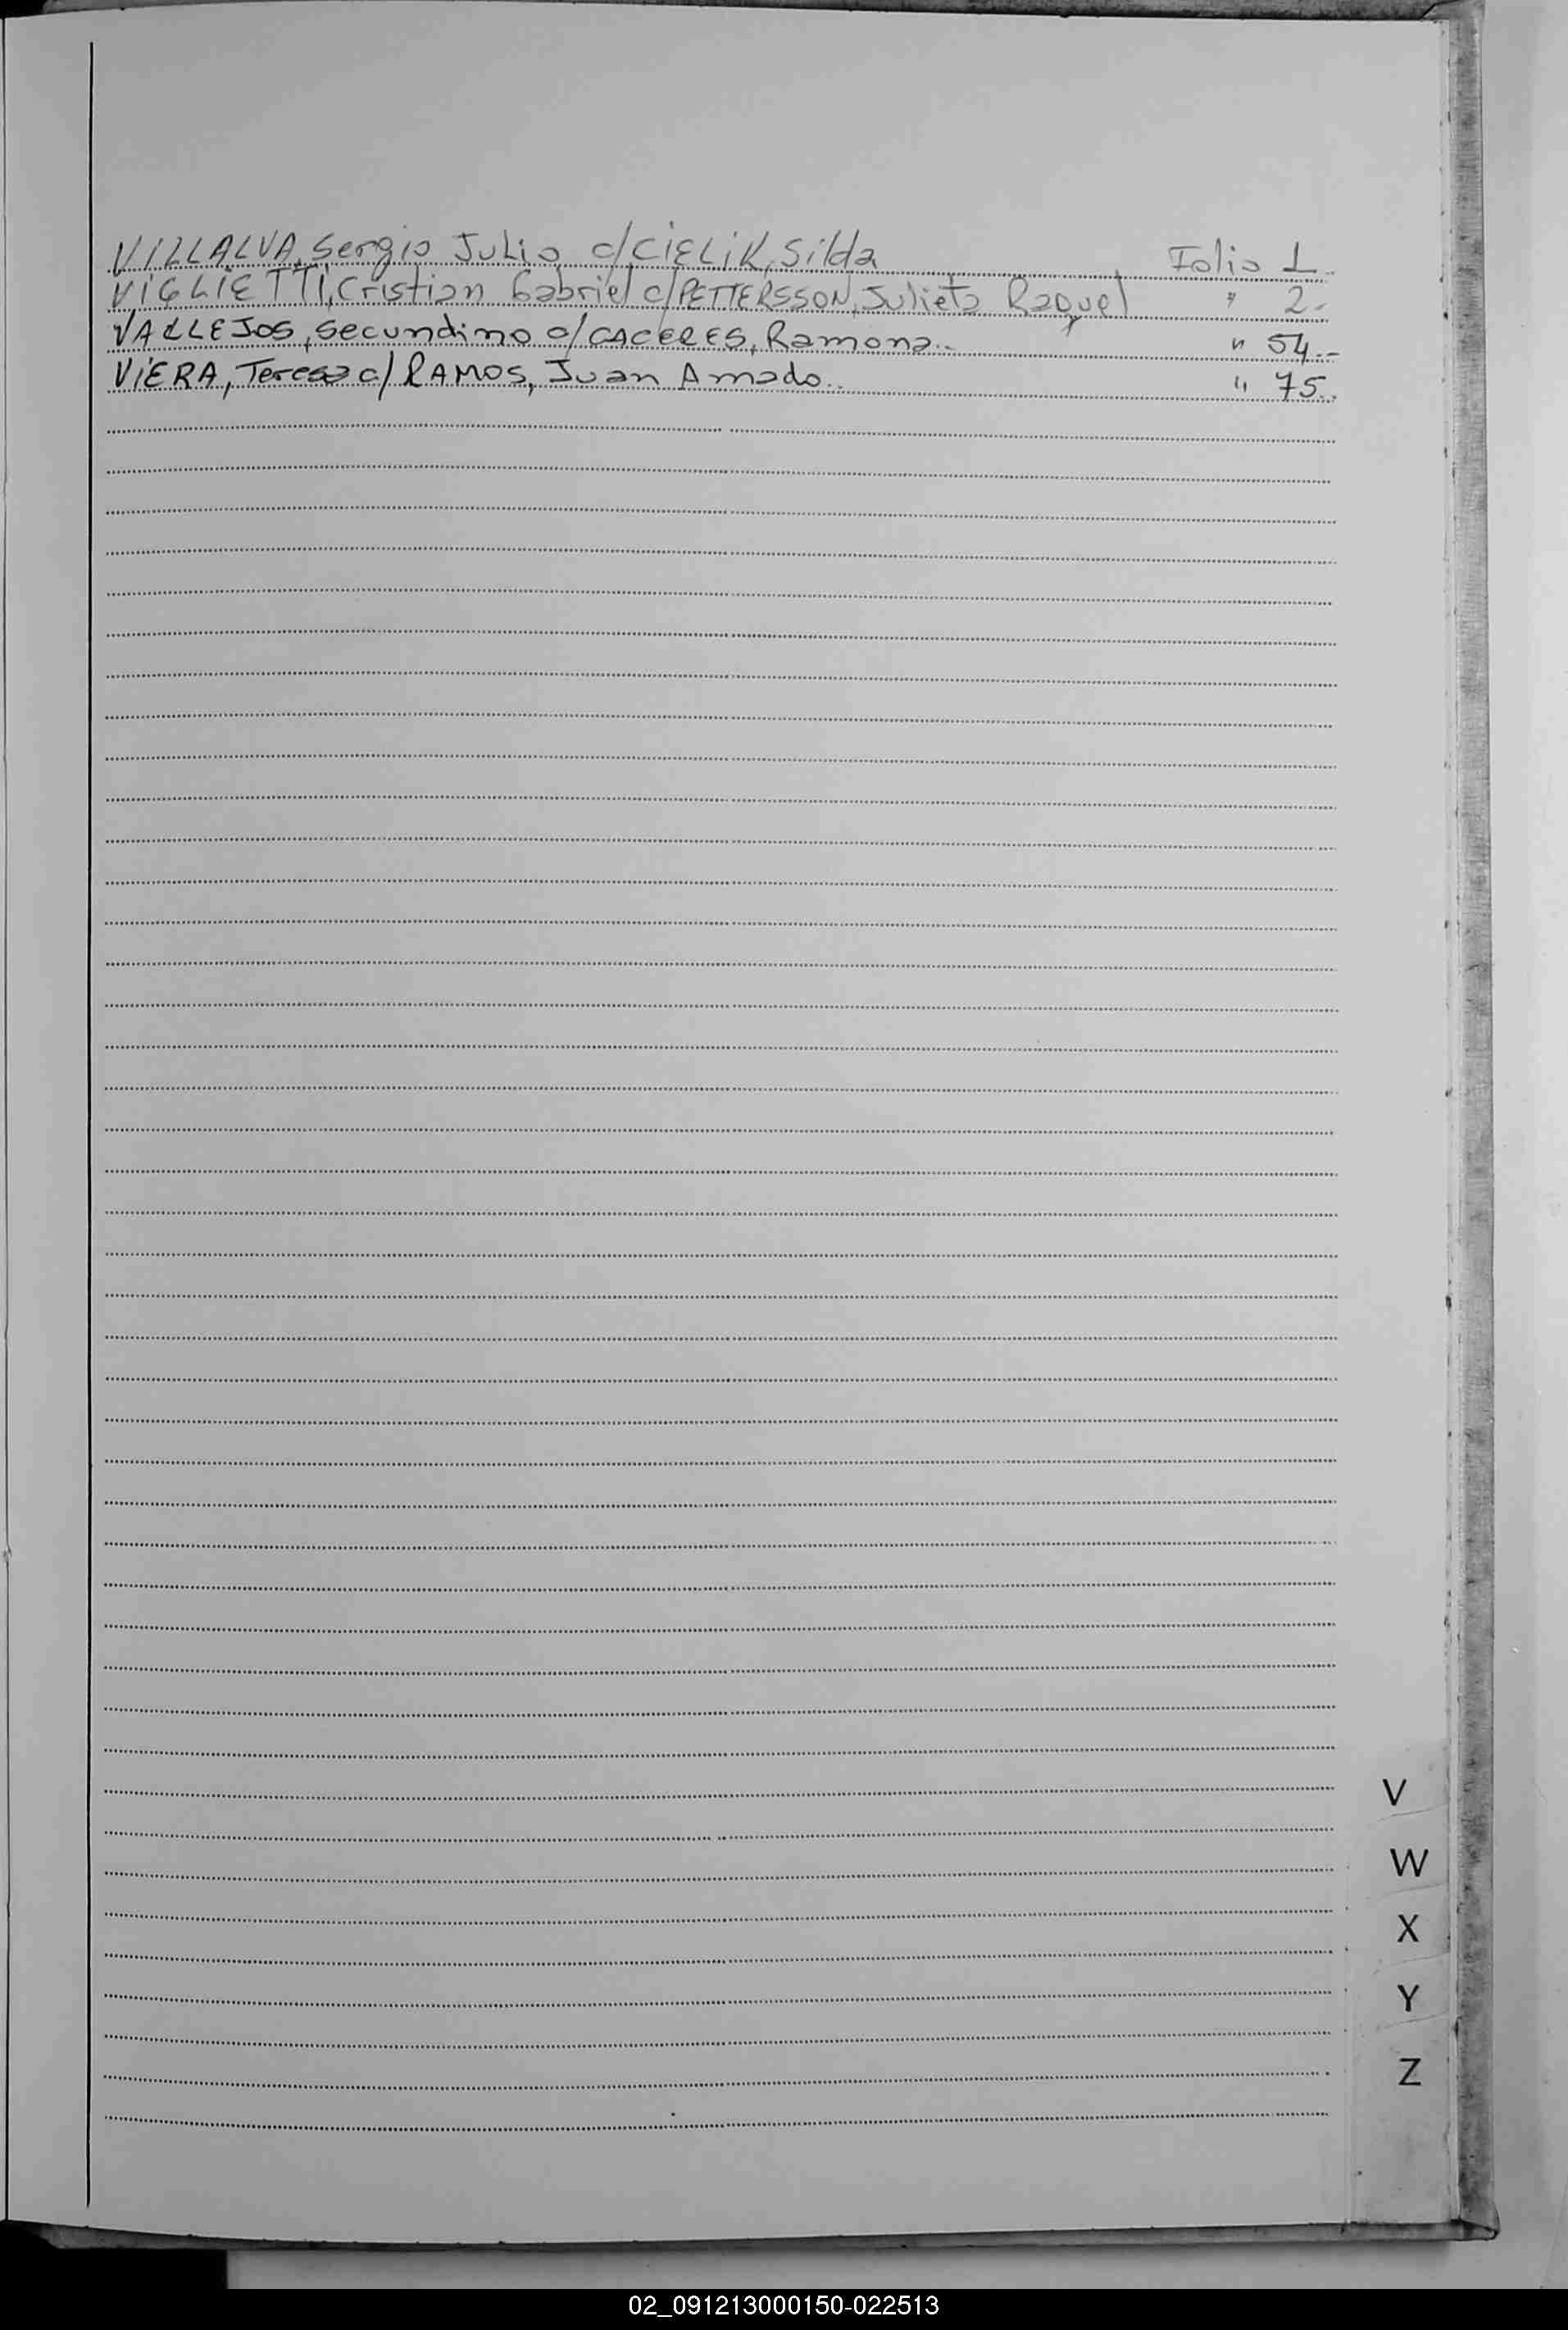 VILLALVA, Sergio Julio c/CIELIK, Silda Folio 1-
VIGLIETTI, Cristian Gabriel c/PETTERSSON, Julieta Raquel " 2-
VALLEJOS, Secundino c/CACERES, Ramona.- " 54.-
VIERA, Teresa c/ RAMOS, Juan Amado.. " 75..
V
W
X
Y
Z
02_091213000150-022513